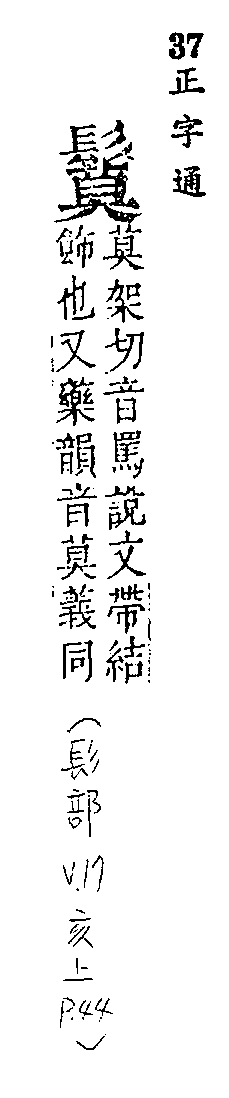 37 正字通
鬕
莫架切音罵說文帶結
飾也又藥韻音莫義同
(髟部 V.17 亥上 P.44)